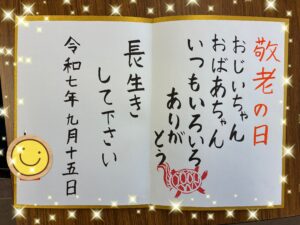 敬老の日
おじいちゃん
おばあちゃん
いつもいろいろ
ありが
とう
長生き
して下さい
令和七年九月十五日